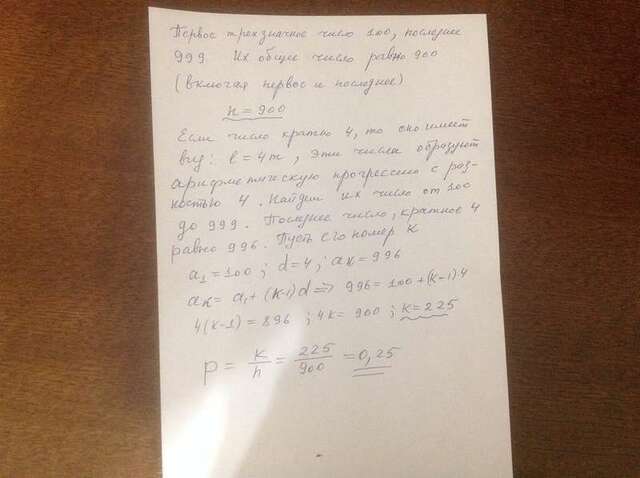 Первое трехзначное число 100, последнее
999 Их общее число равно 900
(включая первое и последнее)
n = 900
Если число кратно 4, то оно имеет
вид: l = 4m, эти числа образуют
арифметическую прогрессию с раз-
ностью 4. Найдем их число от 100
до 999. Последнее число, кратное 4
равно 996. Пусть его номер k
a₁ = 100; d = 4; aк = 996
aк = a₁ + (k-1)d => 996 = 100 + (k-1)·4
4(k-1) = 896; 4k = 900; k = 225
P = k/n = 225/900 = 0,25